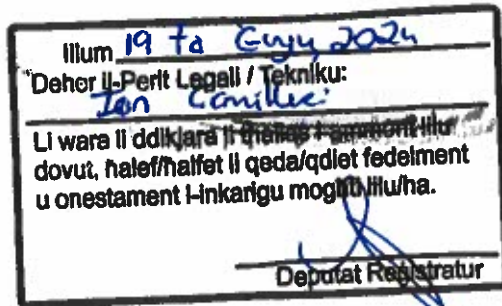 Illum 19 ta Ġunju 2024
Deher il-Perit Legali / Tekniku:
Li wara li ddikjara li tħallas l-ammont lilu
dovut, ħalef/ħalfet li qeda/qdiet fedelment
u onestament l-inkarigu mogħti lilu/ha.
Deputat Reġistratur